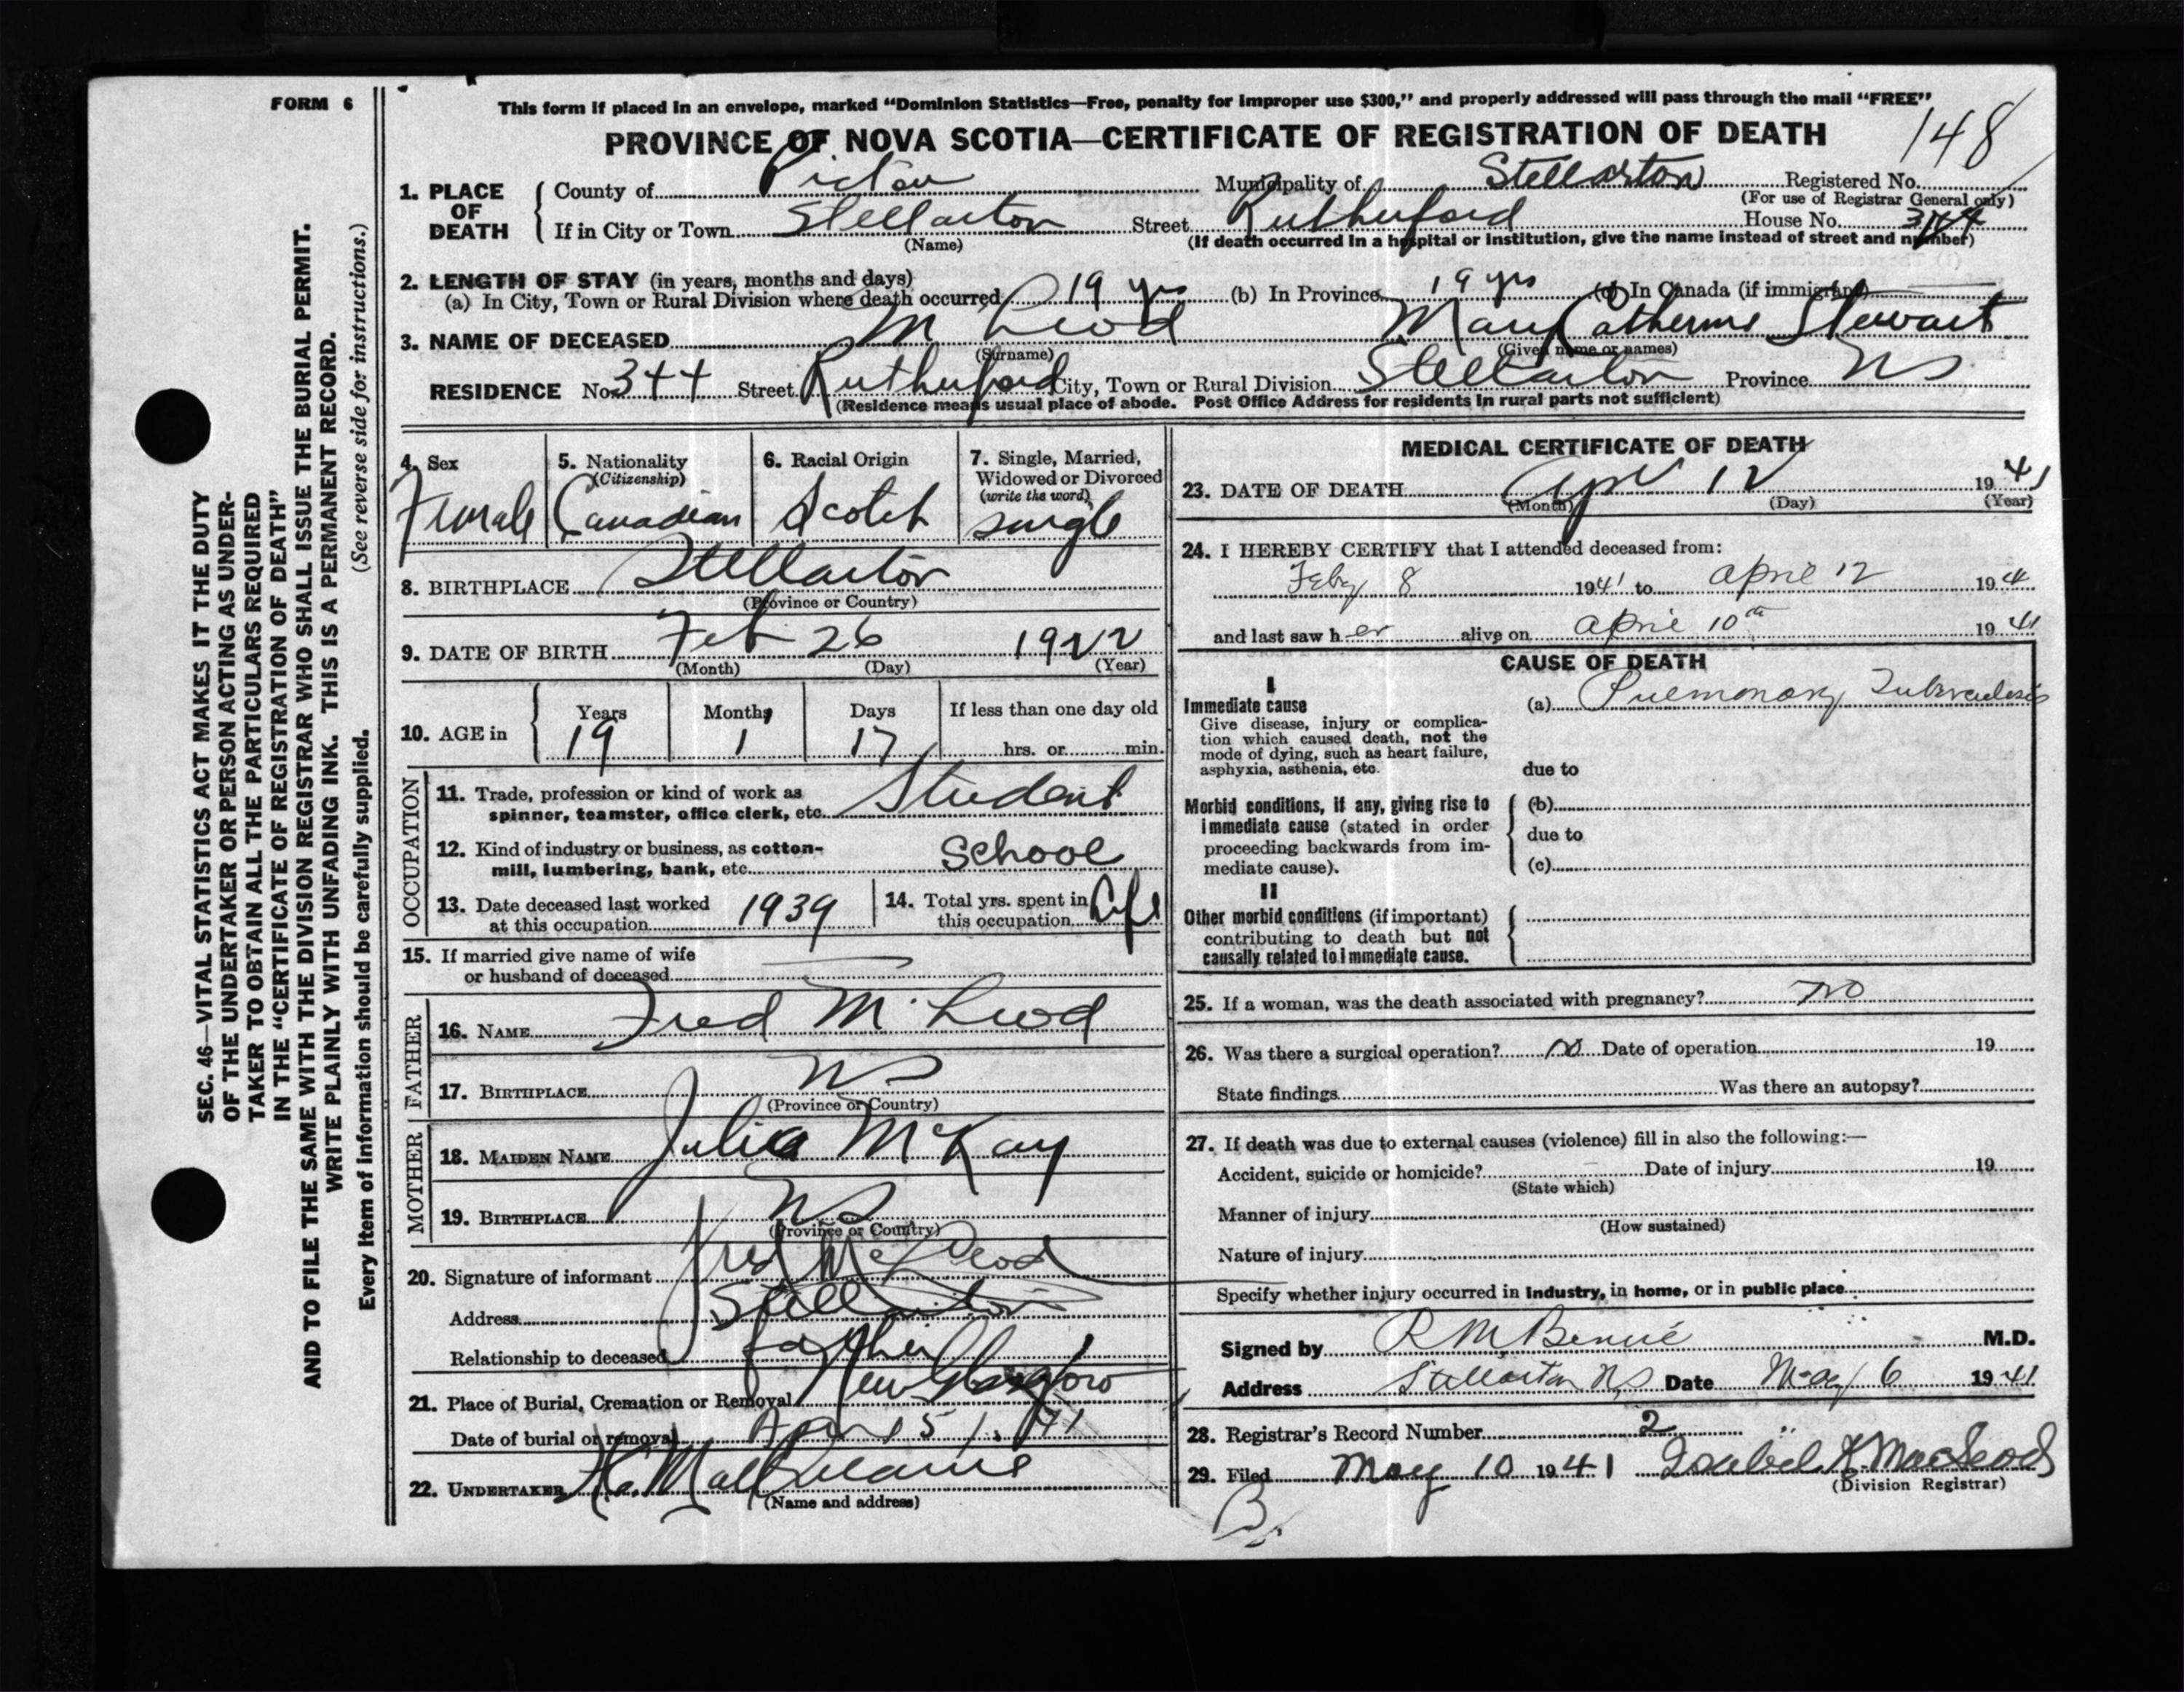 FORM 6
This form if placed in an envelope, marked "Dominion Statistics—Free, penalty for improper use $300," and properly addressed will pass through the mail "FREE"
PROVINCE OF NOVA SCOTIA—CERTIFICATE OF REGISTRATION OF DEATH
148
1. PLACE OF DEATH { County of Pictou Municipality of Stellarton Registered No.
(For use of Registrar General only)
If in City or Town Stellarton Street Rutherford House No. 344
(Name) (If death occurred in a hospital or institution, give the name instead of street and number)
2. LENGTH OF STAY (in years, months and days)
(a) In City, Town or Rural Division where death occurred 19 yrs (b) In Province 19 yrs (c) In Canada (if immigrant)
3. NAME OF DECEASED McLeod Mary Catherine Stewart
(Surname) (Given name or names)
RESIDENCE No. 344 Street Rutherford City, Town or Rural Division Stellarton Province NS
(Residence means usual place of abode. Post Office Address for residents in rural parts not sufficient)
4. Sex 5. Nationality (Citizenship) 6. Racial Origin 7. Single, Married, Widowed or Divorced (write the word)
Female Canadian Scotch single
8. BIRTHPLACE Stellarton
(Province or Country)
9. DATE OF BIRTH Feb 26 1922
(Month) (Day) (Year)
10. AGE in { Years Months Days If less than one day old
19 1 17 hrs. or min.
OCCUPATION
11. Trade, profession or kind of work as
spinner, teamster, office clerk, etc. Student
12. Kind of industry or business, as cotton-
mill, lumbering, bank, etc. School
13. Date deceased last worked at this occupation 1939 14. Total yrs. spent in this occupation Life
15. If married give name of wife
or husband of deceased
FATHER
16. NAME Fred McLeod
17. BIRTHPLACE NS
(Province or Country)
MOTHER
18. MAIDEN NAME Julia McKay
19. BIRTHPLACE NS
(Province or Country)
20. Signature of informant Fred McLeod
Address Stellarton
Relationship to deceased father
21. Place of Burial, Cremation or Removal New Glasgow
Date of burial or removal Apr 15 / 41
22. UNDERTAKER
(Name and address)
MEDICAL CERTIFICATE OF DEATH
23. DATE OF DEATH Apr 12 1941
(Month) (Day) (Year)
24. I HEREBY CERTIFY that I attended deceased from:
Feby 8 1941 to April 12 1941
and last saw her alive on April 10th 1941
CAUSE OF DEATH
I
Immediate cause (a) Pulmonary Tuberculosis
Give disease, injury or complica-
tion which caused death, not the
mode of dying, such as heart failure,
asphyxia, asthenia, etc. due to
Morbid conditions, if any, giving rise to (b)
immediate cause (stated in order due to
proceeding backwards from im-
mediate cause). (c)
II
Other morbid conditions (if important)
contributing to death but not
causally related to immediate cause.
25. If a woman, was the death associated with pregnancy? no
26. Was there a surgical operation? no Date of operation 19
State findings Was there an autopsy?
27. If death was due to external causes (violence) fill in also the following:—
Accident, suicide or homicide? Date of injury 19
(State which)
Manner of injury
(How sustained)
Nature of injury
Specify whether injury occurred in industry, in home, or in public place
Signed by R M Benvie M.D.
Address Stellarton NS Date May 6 1941
28. Registrar's Record Number 2
29. Filed May 10 1941 Isabel K. MacLeod
(Division Registrar)
B.
SEC. 46—VITAL STATISTICS ACT MAKES IT THE DUTY
OF THE UNDERTAKER OR PERSON ACTING AS UNDER-
TAKER TO OBTAIN ALL THE PARTICULARS REQUIRED
IN THE "CERTIFICATE OF REGISTRATION OF DEATH"
AND TO FILE THE SAME WITH THE DIVISION REGISTRAR WHO SHALL ISSUE THE BURIAL PERMIT.
WRITE PLAINLY WITH UNFADING INK. THIS IS A PERMANENT RECORD.
Every item of information should be carefully supplied. (See reverse side for instructions.)